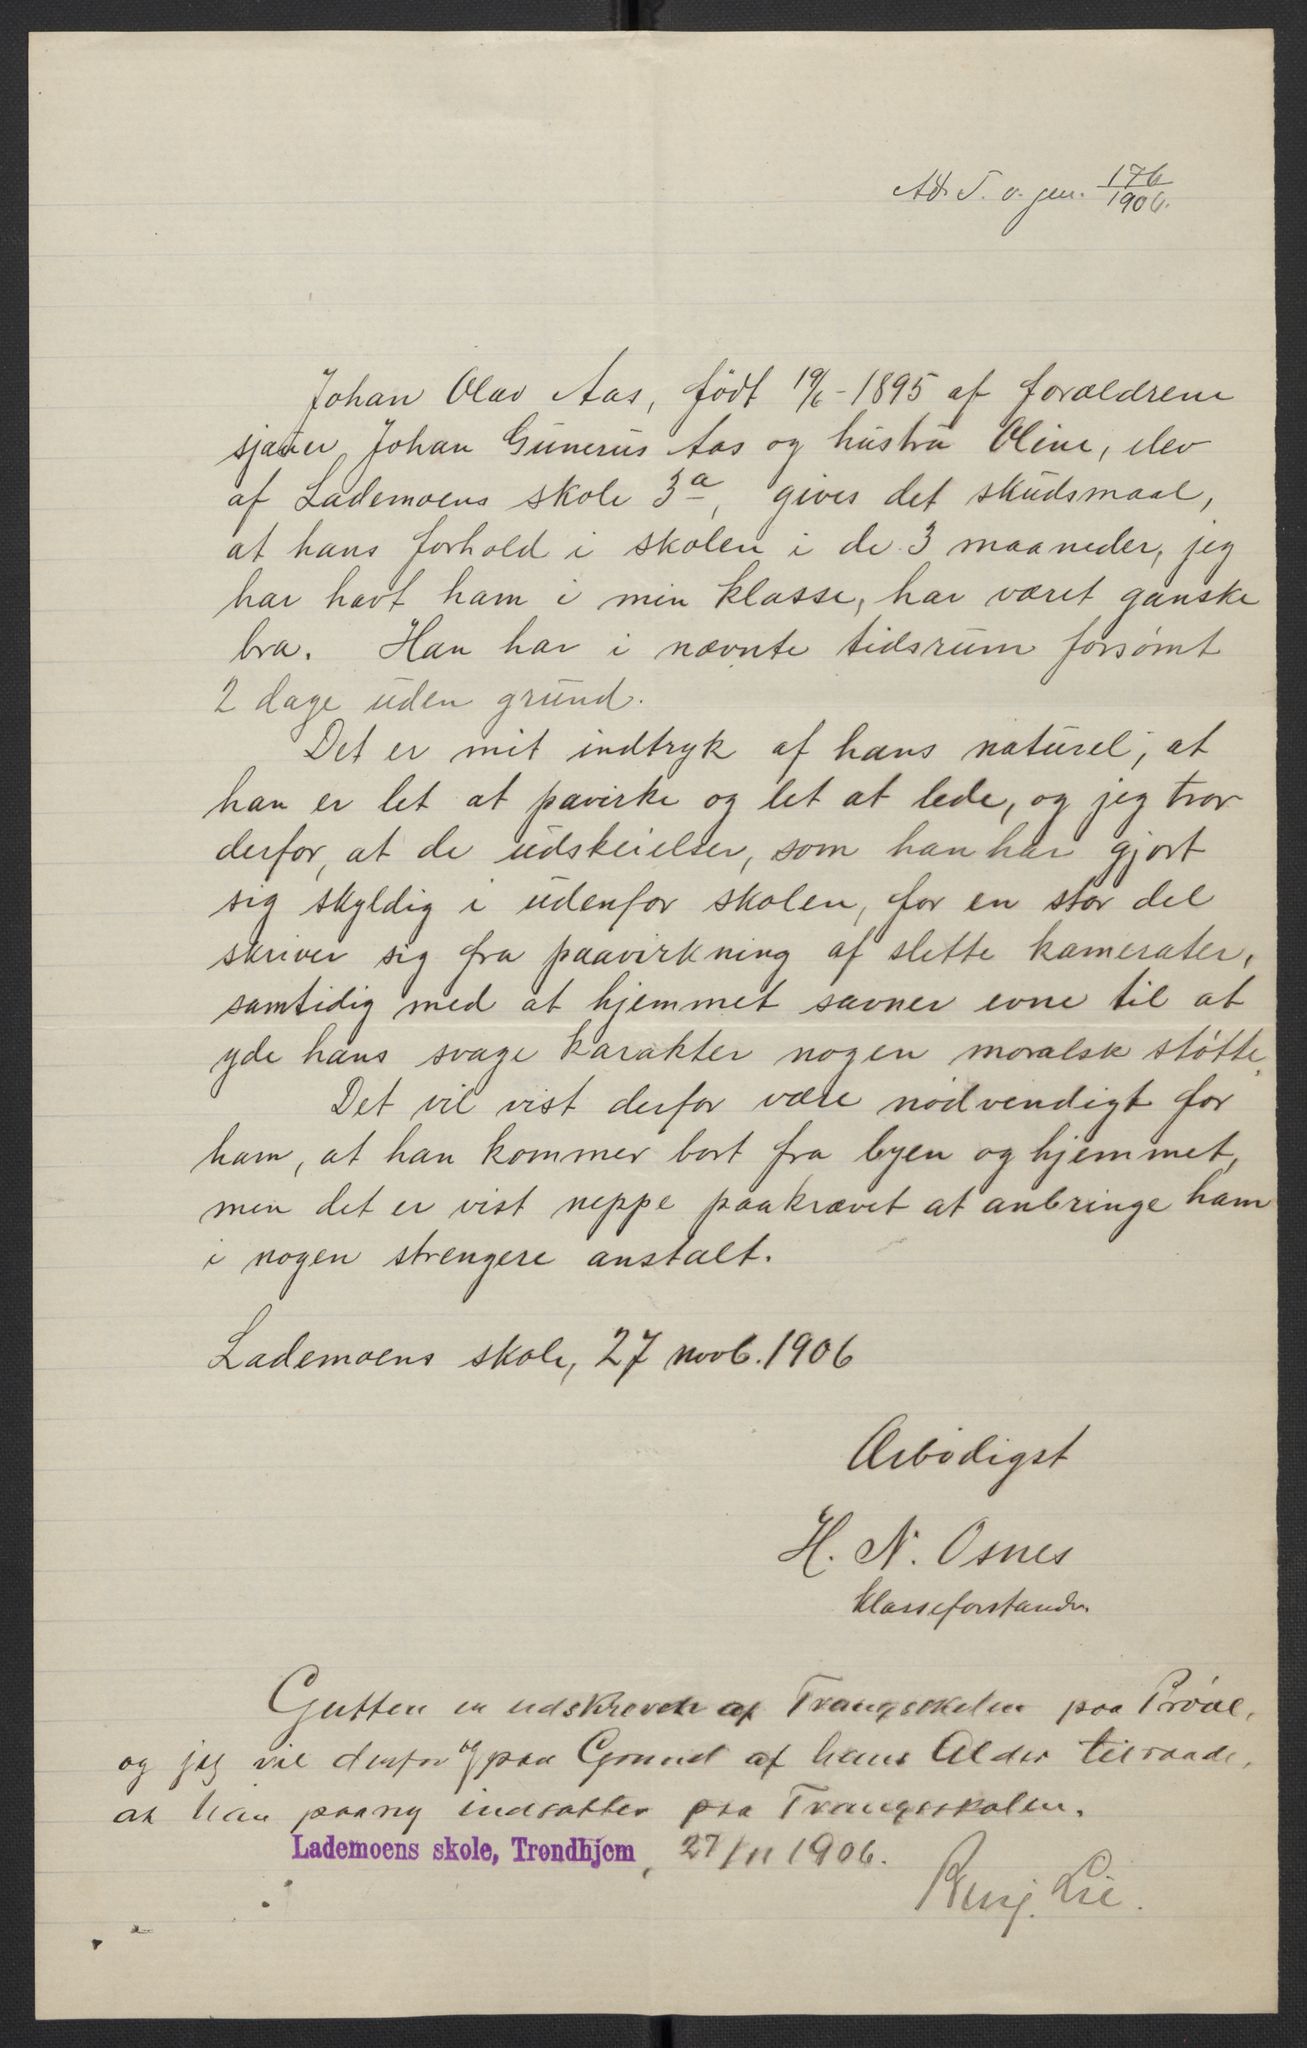 176
1906.
Johan Olav Aas, födt 19/6 - 1895 af forældrene
sjauer Johan Gunerus Aas og hustru Oline, elev
af Lademoens skole 3a, gives det skudsmaal,
at hans forhold i skolen i de 3 maaneder, jeg
har havt ham i min klasse, har været ganske
bra. Han har i nævnte tidsrum forsømt
2 dage uden grund.
Det er mit indtryk af hans naturel, at
han er let at pavirke og let at lede, og jeg tror
derfor, at de udskeielser, som han har gjort
sig skyldig i udenfor skolen, for en stor del
skriver sig fra paavirkning af slette kamerater,
samtidig med at hjemmet savner evne til at
yde hans svage karakter nogen moralsk støtte.
Det vil vist derfor være nødvendigt for
ham, at han kommer bort fra byen og hjemmet,
men det er vist neppe paakrævet at anbringe ham
i nogen strengere anstalt.
Lademoens skole, 27 novb. 1906
Ærbødigst
H. N. Osnes
klasseforstander
Gutten er udskreven af Tvangsskolen paa Prøve,
og jeg vil derfor og paa Grund af hans Alder tilraade,
at han paany indsættes paa Tvangsskolen.
Lademoens skole, Trondhjem, 27/11 1906.
Benj. Lie.